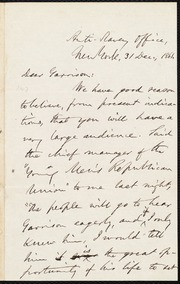 Anti-Slavery Office,
New York, 31 Dec., 1861.
Dear Garrison:
We have good reason
to believe, from present indica-
tions, that you will have a
very large audience. Said
the chief manager of the
"Young Men's Republican
Union" to me last night,
"The people will go to hear
Garrison eagerly, and if I only
knew him, I would tell
him the great op-
portunity of his life to set